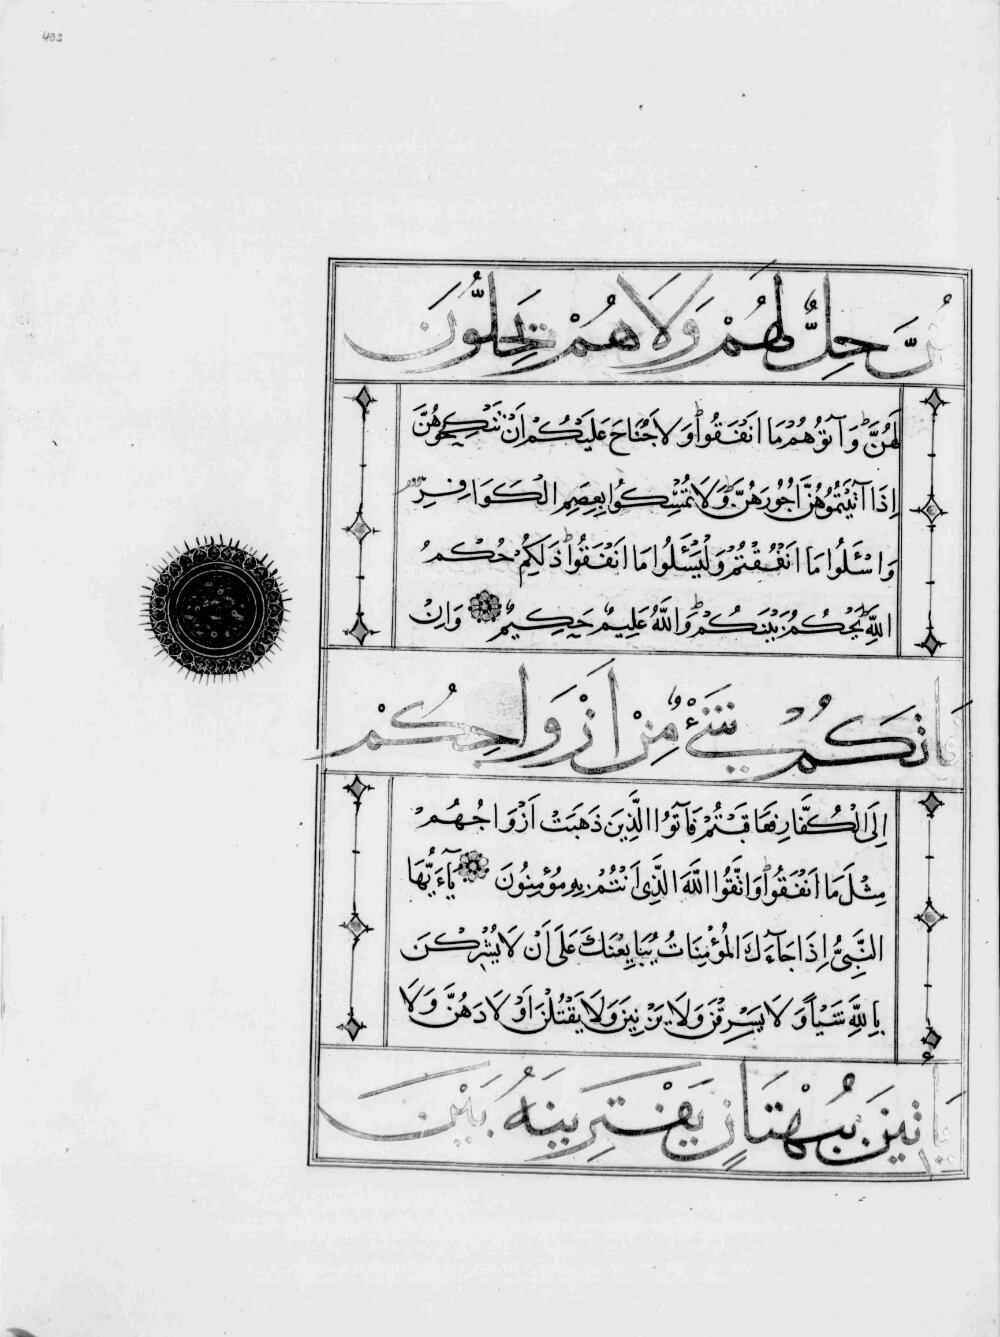 403
نَّ حِلٌّ لَهُمْ وَلَا هُمْ يَحِلُّونَ
لَهُنَّ وَآتُوهُمْ مَا اَنْفَقُوا وَلَا جُنَاحَ عَلَيْكُمْ اَنْ تَنْكِحُوهُنَّ
اِذَا آتَيْتُمُوهُنَّ اُجُورَهُنَّ وَلَا تُمْسِكُوا بِعِصَمِ الْكَوَافِرِ
وَاسْئَلُوا مَا اَنْفَقْتُمْ وَلْيَسْئَلُوا مَا اَنْفَقُوا ذَلِكُمْ حُكْمُ
اللَّهِ يَحْكُمُ بَيْنَكُمْ وَاللَّهُ عَلِيمٌ حَكِيمٌ وَاِنْ
فَاتَكُمْ شَيْءٌ مِنْ اَزْوَاجِكُمْ
اِلَى الْكُفَّارِ فَعَاقَبْتُمْ فَآتُوا الَّذِينَ ذَهَبَتْ اَزْوَاجُهُمْ
مِثْلَ مَا اَنْفَقُوا وَاتَّقُوا اللَّهَ الَّذِى اَنْتُمْ بِهِ مُؤْمِنُونَ يَآءَيُّهَا
النَّبِىُّ اِذَا جَآءَكَ الْمُؤْمِنَاتُ يُبَايِعْنَكَ عَلَى اَنْ لَا يُشْرِكْنَ
بِاللَّهِ شَيْاً وَلَا يَسْرِقْنَ وَلَا يَزْنِينَ وَلَا يَقْتُلْنَ اَوْلَادَهُنَّ وَلَا
يَاْتِينَ بِبُهْتَانٍ يَفْتَرِينَهُ بَيْنَ